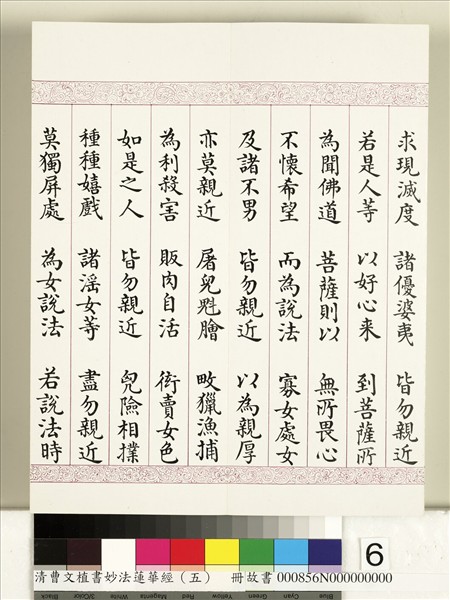 求現滅度 諸優婆夷 皆勿親近
若是人等 以好心来 到菩薩所
為聞佛道 菩薩則以 無所畏心
不懷希望 而為說法 寡女處女
及諸不男 皆勿親近 以為親厚
亦莫親近 屠兒魁膾 畋獵漁捕
為利殺害 販肉自活 衒賣女色
如是之人 皆勿親近 兇險相撲
種種嬉戲 諸淫女等 盡勿親近
莫獨屏處 為女說法 若說法時
6
清曹文植書妙法蓮華經（五） 冊故書 000856N000000000
Black 3/Color White Magenta Red Yellow Green Cyan Blue